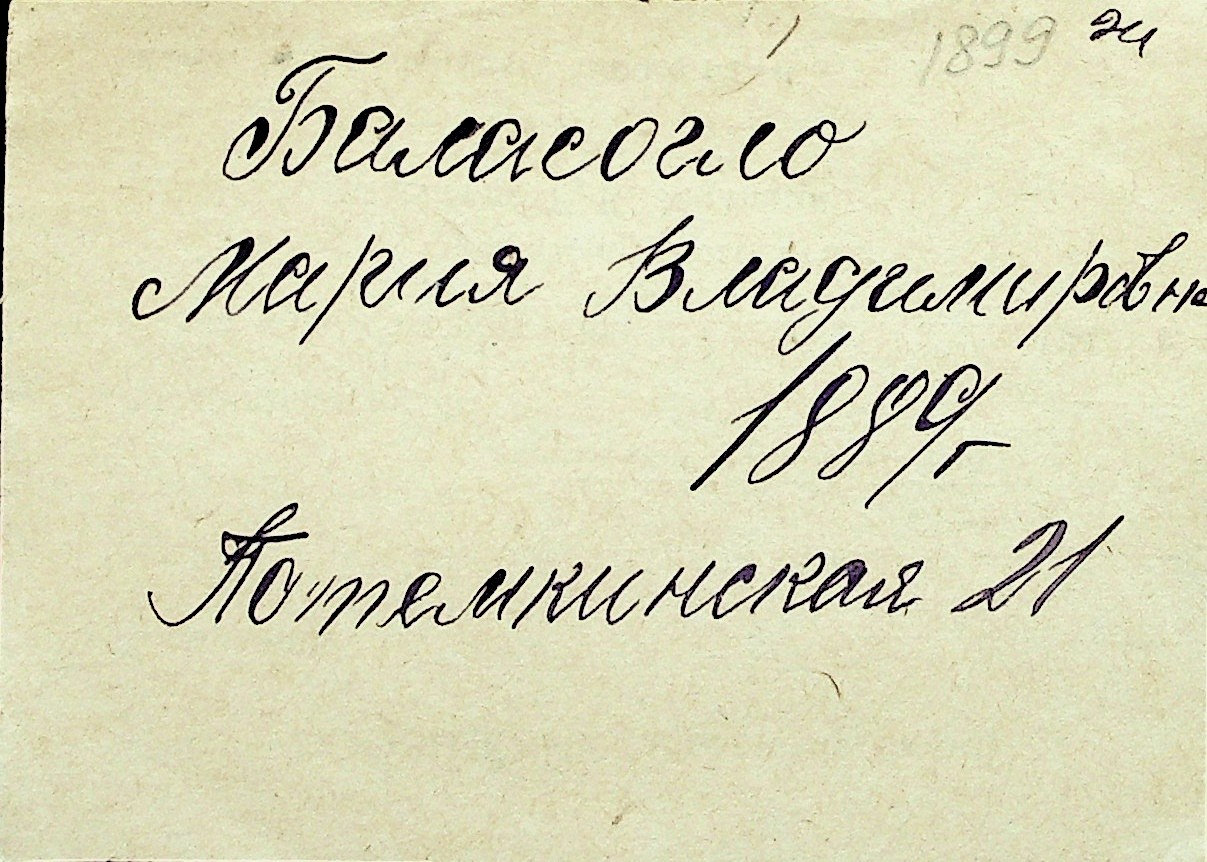 1899
Баласогло
Мария Владимировна
1889г
Потемкинская 21